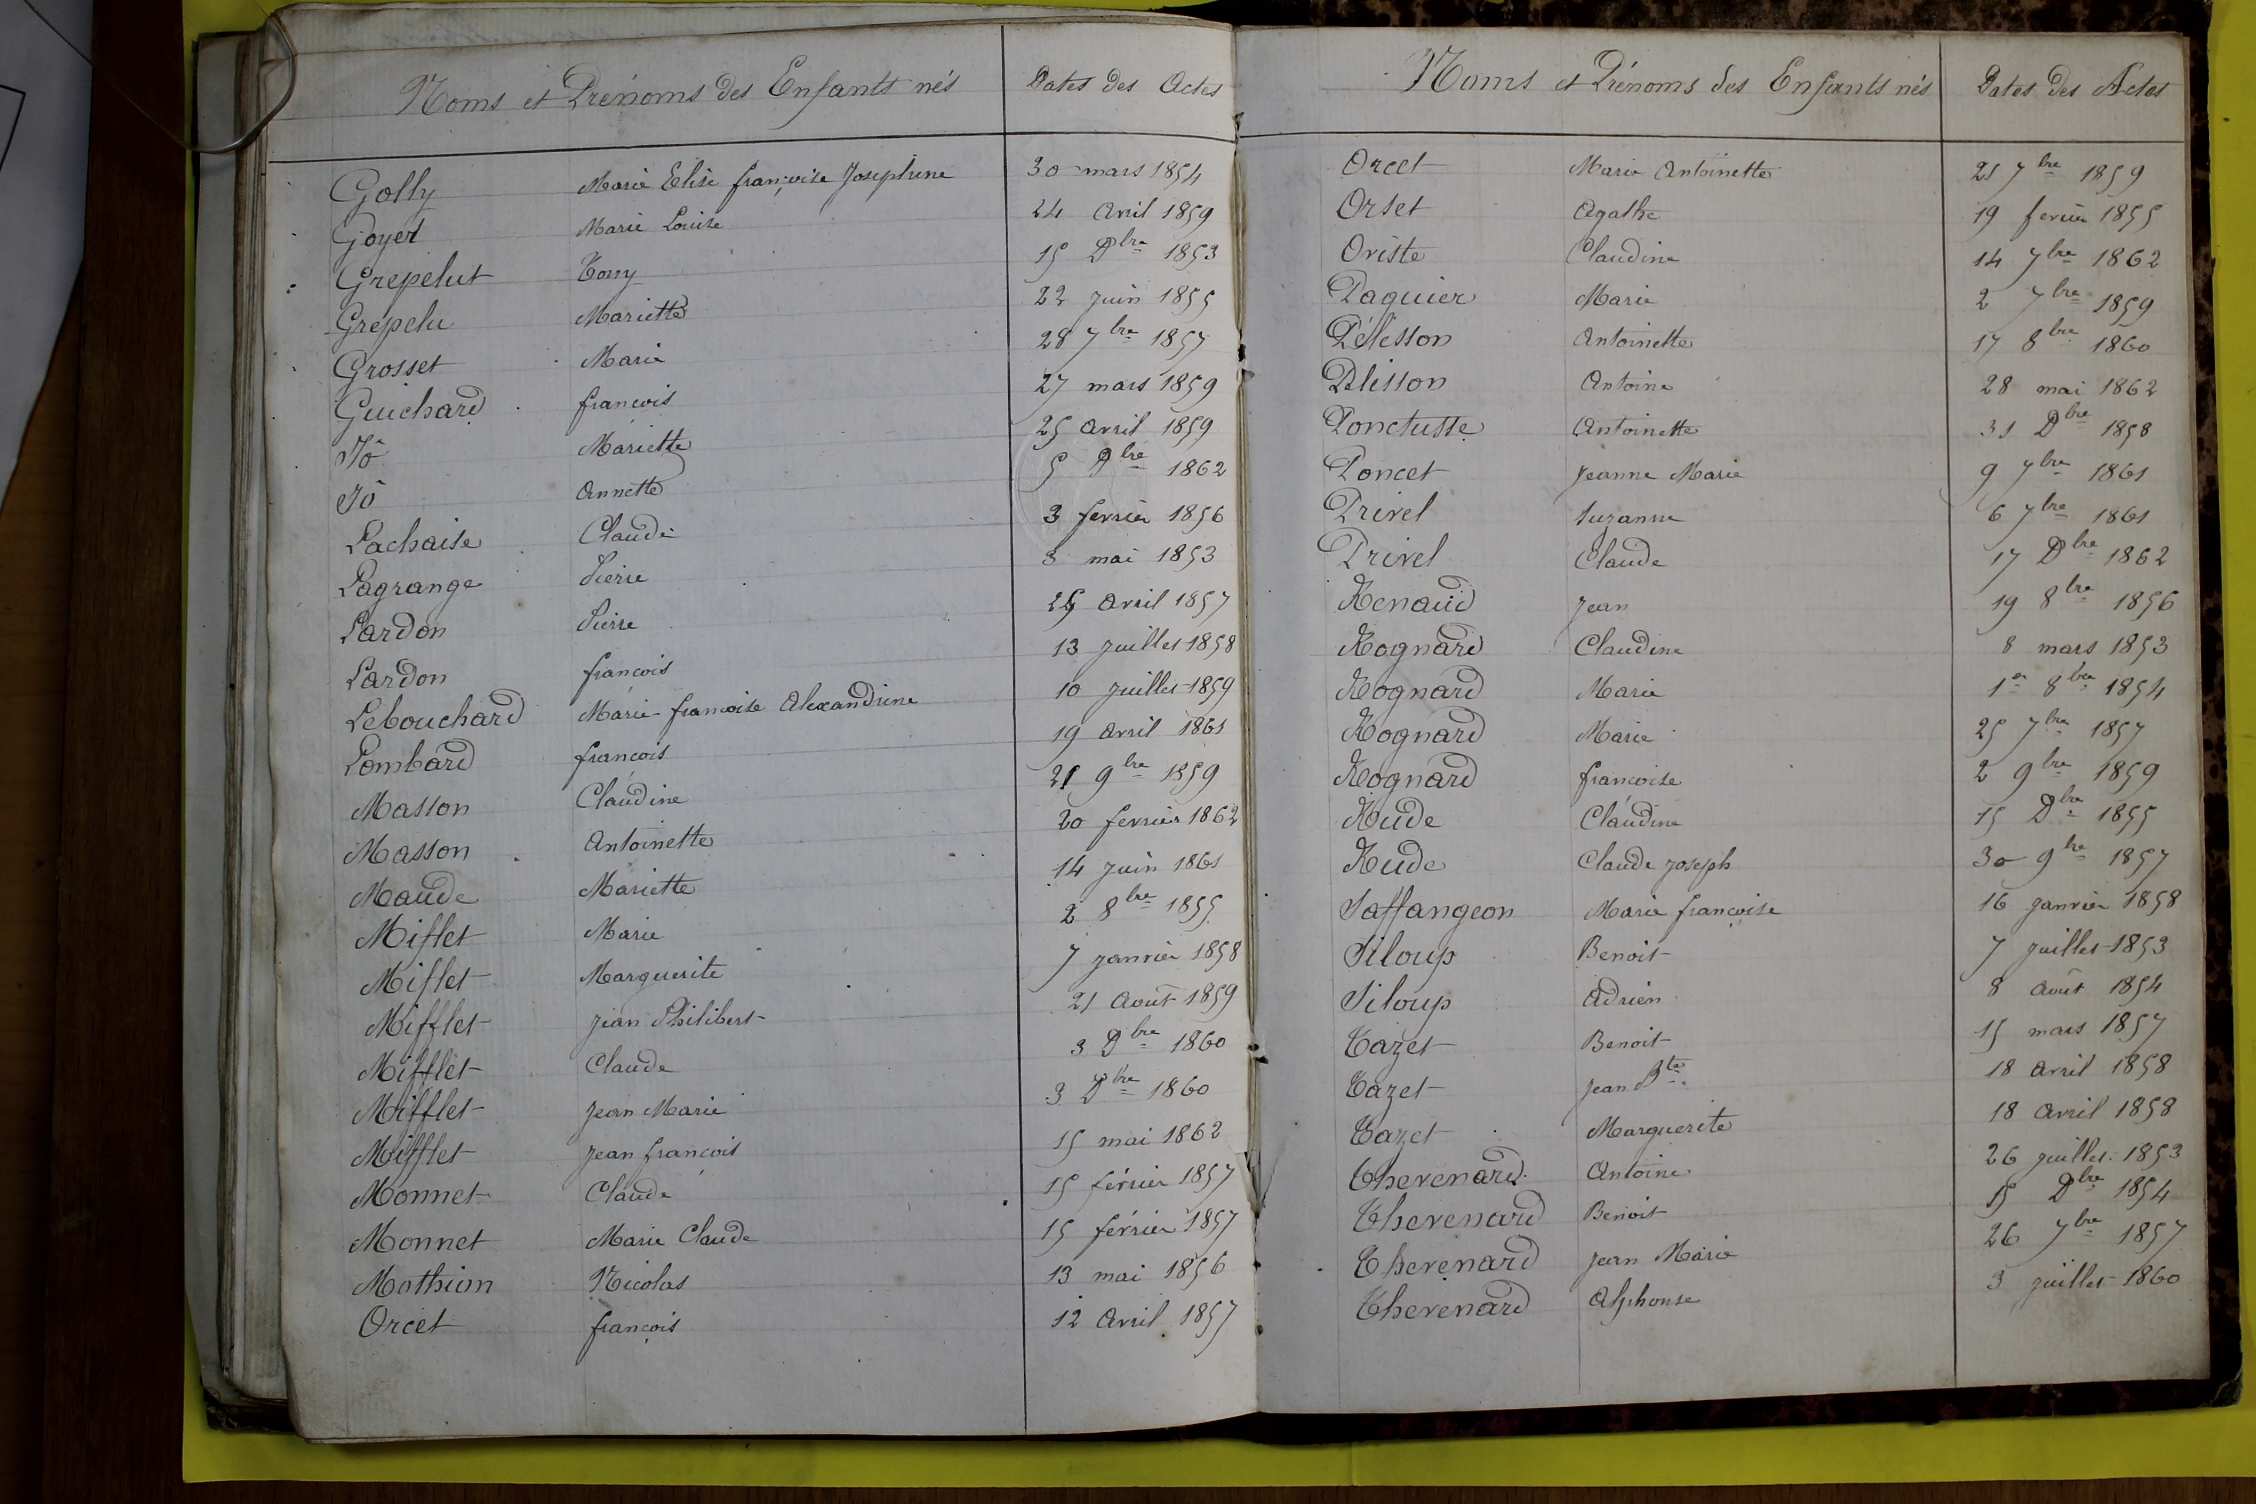 Noms et Prénoms des Enfants nés Dates des Actes
Golly Marie Elise françoise Josephine 30 mars 1854
Goyet Marie Louise 24 Avril 1859
Grepelut Tony 15 Dbre 1853
Grepelu Mariette 22 juin 1855
Grosset Marie 28 7bre 1857
Guichard françois 27 mars 1859
Jô Mariette 25 avril 1859
Jô Annette 5 Dbre 1862
Lachaise Claude 3 fevrier 1856
Lagrange Pierre 8 mai 1853
Lardon Pierre 25 avril 1857
Lardon françois 13 juillet 1858
Lebouchard Marie françoise Alexandrine 10 juillet 1859
Lombard françois 19 avril 1861
Masson Claudine 21 9bre 1859
Masson Antoinette 20 fevrier 1862
Maude Mariette 14 juin 1861
Miflet Marie 2 8bre 1855
Miflet Marguerite 7 janvier 1858
Mifflet jean Philibert 21 Août 1859
Mifflet Claude 3 Dbre 1860
Mifflet jean Marie 3 Dbre 1860
Mifflet jean françois 15 mai 1862
Monnet Claude 15 février 1857
Monnet Marie Claude 15 février 1857
Mathion Nicolas 13 mai 1856
Orcet françois 12 Avril 1857
Noms et Prénoms des Enfants nés Dates des Actes
Orcet Marie Antoinette 21 7bre 1859
Orset Agathe 19 fevrier 1855
Oriste Claudine 14 7bre 1862
Paquier Marie 2 7bre 1859
Pélisson Antoinette 17 8bre 1860
Plisson Antoine 28 mai 1862
Ponctusse Antoinette 31 Dbre 1858
Poncet jeanne Marie 9 7bre 1861
Privel Suzanne 6 7bre 1861
Privel Claude 17 Dbre 1862
Renaud jean 19 8bre 1856
Rognard Claudine 8 mars 1853
Rognard Marie 1er 8bre 1854
Rognard Marie 25 7bre 1857
Rognard françoise 2 9bre 1859
Rude Claudine 15 Dbre 1855
Rude Claude joseph 30 9bre 1857
Saffangeon Marie françoise 16 janvier 1858
Siloup Benoit 7 juillet 1853
Siloup Adrien 8 août 1854
Tazet Benoit 15 mars 1857
Tazet jean Bte 18 avril 1858
Tazet Marguerite 18 avril 1858
Thevenard Antoine 26 juillet 1853
Thevenard Benoit 15 Dbre 1854
Thevenard jean Marie 26 7bre 1857
Thevenard Alphonse 3 juillet 1860